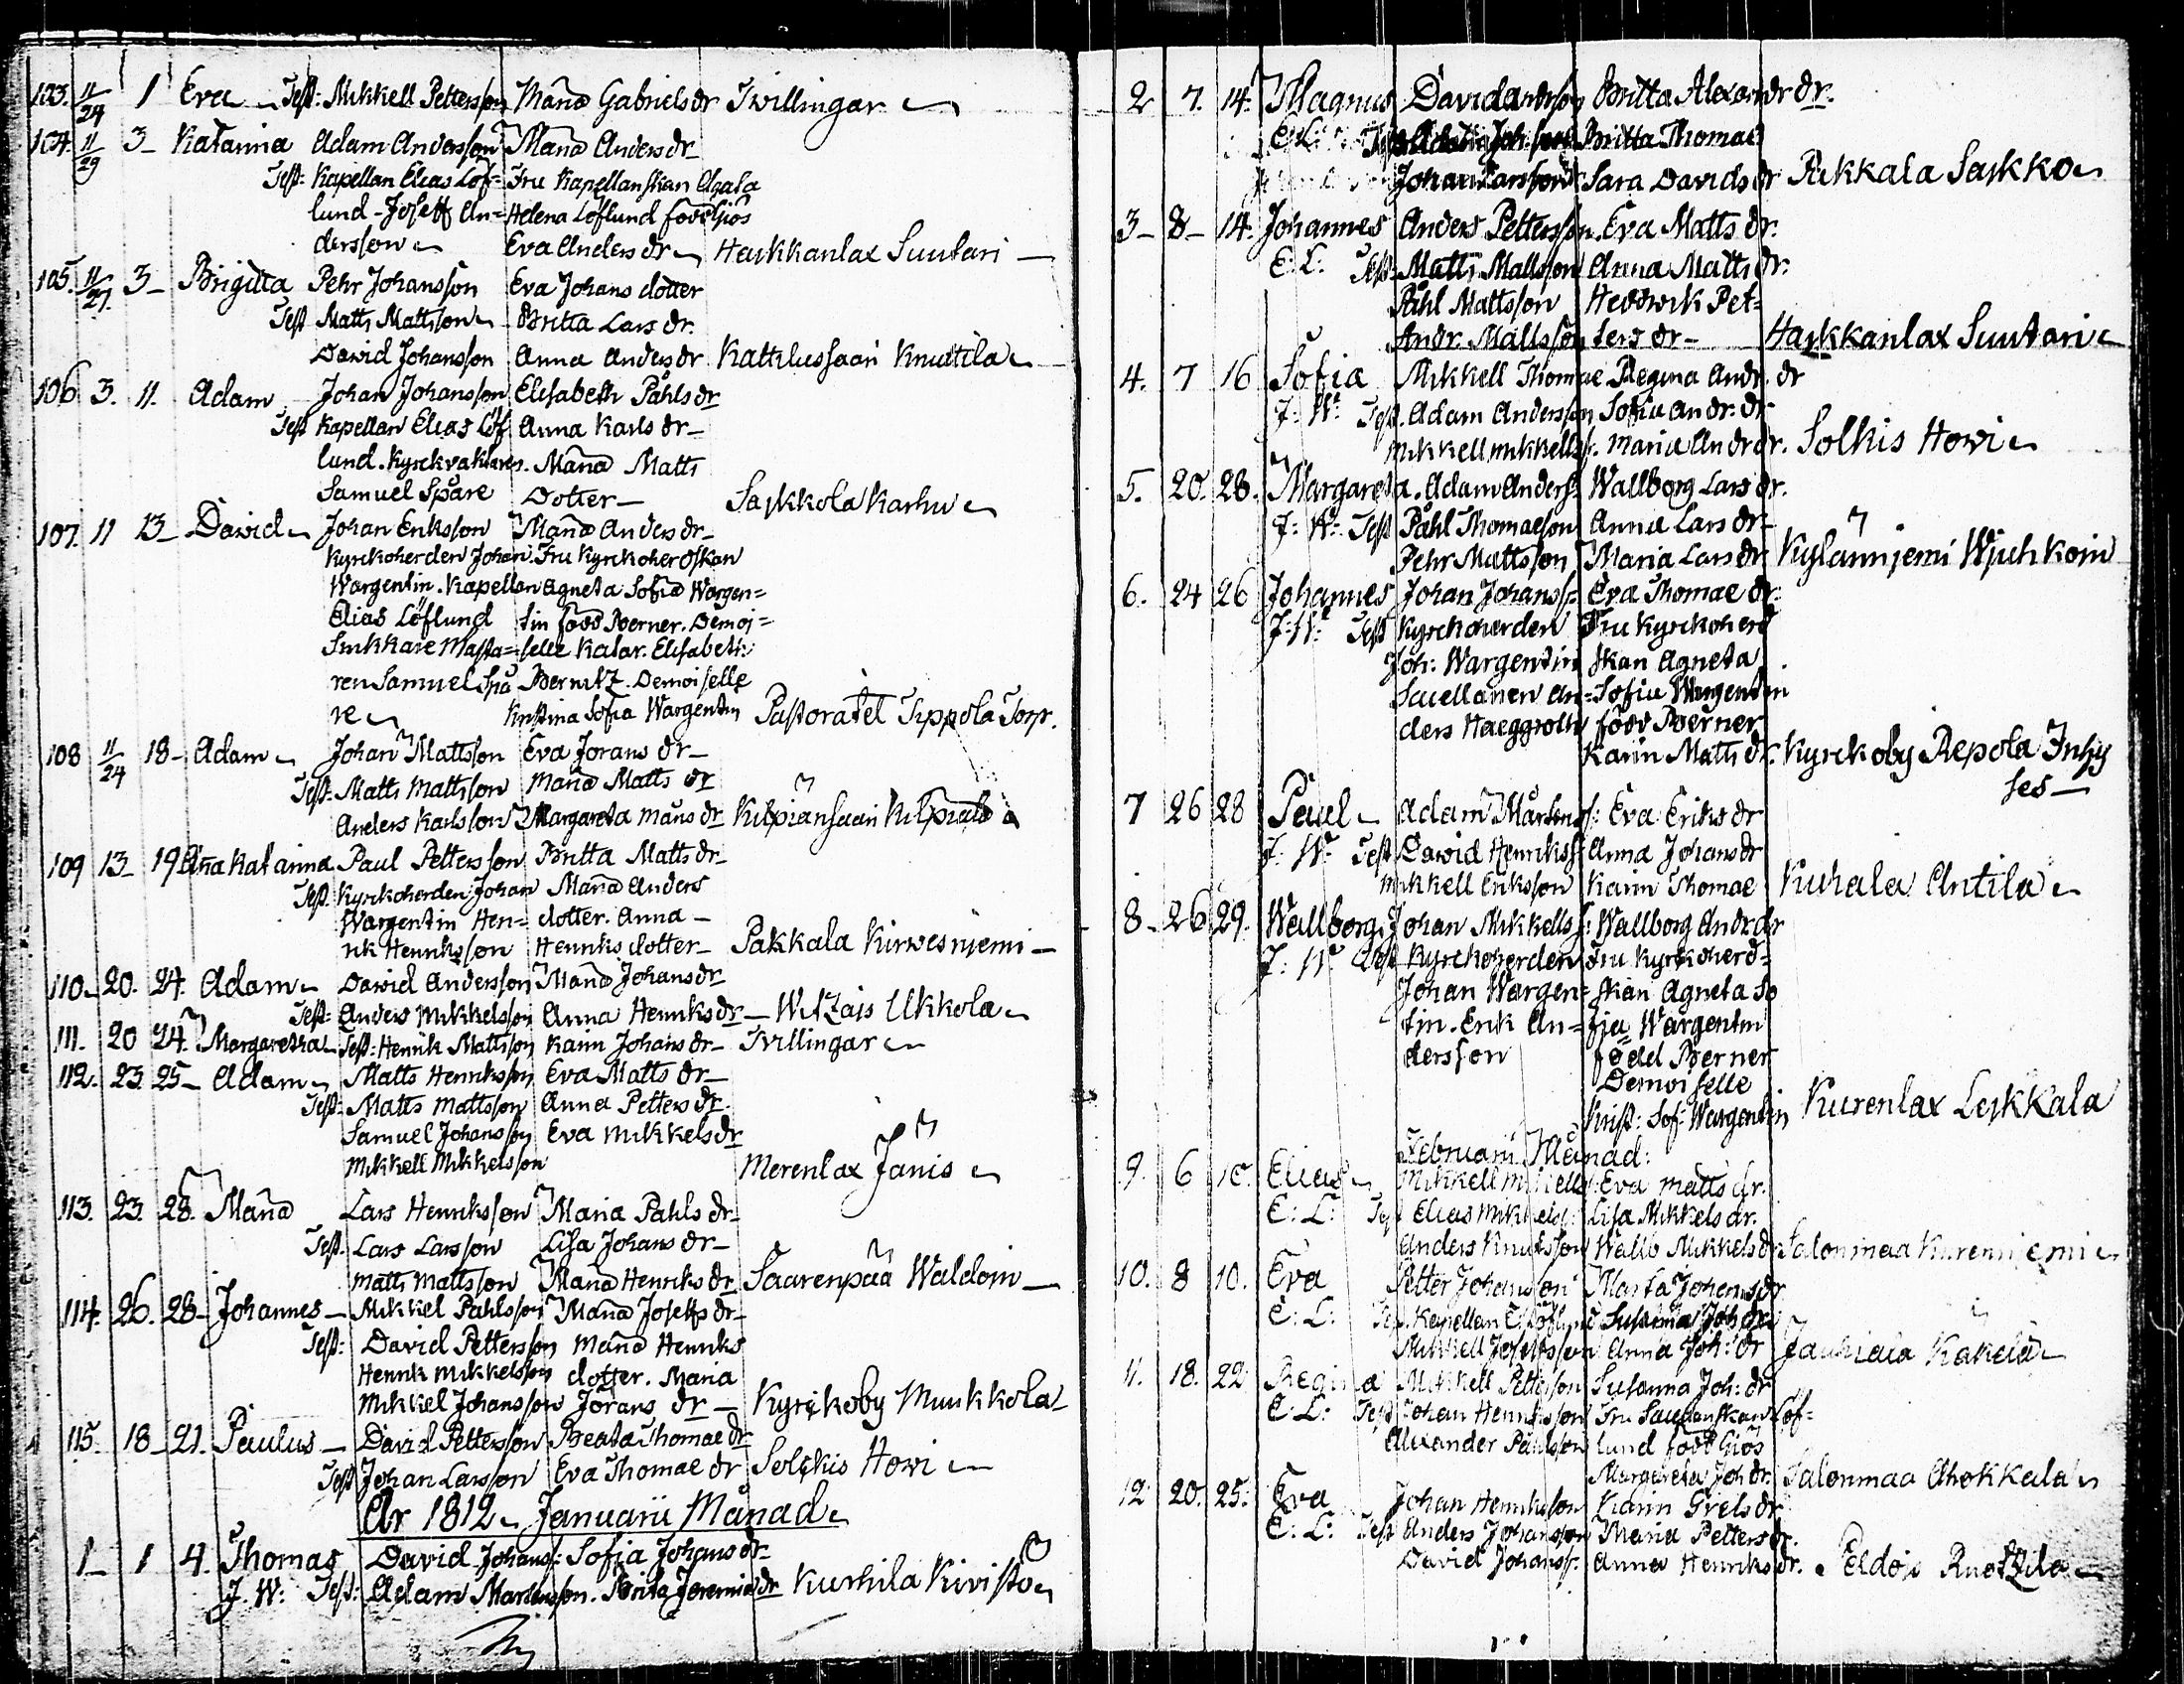 103. 11/29 1 Eva Test: Mikkell Pettersson Maria Gabrielsdr Twillingar
104. 11/29 3 Katarina Adam Andersson Maria Andersdr
Test: Kapellan Elias Löf= Fru Kapellanskan
lund - Joseff An= Helena Löflund född Giös
dersson Eva Andersdr Haskkanlax Suutari
105. 11/27 3 Brigitta Pehr Johansson Eva Johans dotter
Test Matts Mattsson Britta Lars dr.
David Johansson Anna Anders dr Kattilussaari Knuutila
106 3. 11. Adam Johan Johansson Elisabeth Påhls dr
Test Kapellan Elias Löf Anna Karls dr
lund. Kyrckvaktaren. Maria Matts
Samuel Spåre Dotter Säjkkola Karhu
107. 11 13 David Johan Eriksson Maria Anders dr
Kyrckoherden Johan Fru Kyrckoherdskan
Wargentin. Kapellan Agneta Sofia Wargen=
Elias Löflund tin född Berner. Demoi=
selle Katar. Elisabeth
ren Samuel Spå Bernitz. Demoiselle
re Kristina Sofia Wargentin Pastoratet Sippola Torp.
108 11/24 18 Adam Johan Mattsson Eva Jorans dr
Test: Matts Mattsson Maria Matts dr
Anders Karlsson Margareta Måns dr Kilpiansaari
109 13 19 Anna Katarina Paul Pettersson Britta Matts dr
Test: Kyrkoherden Johan Maria Anders
Wargentin Hen= dotter. Anna
rik Henriksson Henriks dotter Pakkala Kirwesniemi
110. 20. 24. Adam David Andersson Maria Johans dr
Test: Anders Mikkelsson Anna Henriks dr Witzais Ukkola
111. 20 24. Margaretha Test: Henrik Mattsson Karin Johans dr Tvillingar
112. 23 25 Adam Matts Henriksson Eva Matts dr
Test: Matts Mattsson Anna Petters dr.
Samuel Johansson Eva Mikkels dr
Mikkell Mikkelsson Merenlax Janis
113. 23. 28. Maria Lars Henriksson Maria Påhls dr
Test: Lars Larsson Lisa Johans dr
Matts Mattsson Maria Henriks dr Saarenpää Waldoin
114. 26. 28 Johannes Mikkel Påhlsson Maria Joseffs dr
Test: David Pettersson Maria Henriks
Henrik Mikkelsson dotter. Maria
Mikkel Johansson Jörans dr Kyrckoby Munkkola
115. 18 21. Paulus David Pettersson Beata Thomae dr
Test Johan Larsson Eva Thomae dr Solckis Howi
År 1812 Januarii Månad
1 1 4. Thomas David Johans: Sofia Johans dr
J. W: Test: Adam Mårtensson. Brita Jeremia dr Kurkila Kivistö
2 7. 14. Magnus David Britta Alexander dr.
E. L: Britta Thomae
Johan Larsson Sara Davids dr Pakkala Säjkko
3 8 14. Johannes Anders Pettersson. Eva Matts dr.
E. L: Test: Matts Mattsson Anna Matts dr.
Påhl Mattsson Hedwik Pet=
Andr. Mattsson ters dr Haskkanlax Suutari
4. 7 16 Sofia Mikkell Thomae Regina Andr. dr
J: W: Test. Adam Andersson Sofia Andr. dr
Mikkell Mikkells: Maria Andr dr. Solkis Howi
5. 20. 28. Margareta. Adam Anders: Wallborg Lars dr.
J: W: Test Påhl Thomaeson Anna Lars dr
Pehr Mattsson Maria Lars dr Kylänniemi
6. 24 26 Johannes Johan Johans: Eva Thomae dr.
J: W: Test Kyrckoherden Fru Kyrckoherd
Joh: Wargentin skan Agneta
An= Sofia Wargentin
ders Haeggroth född Berner
Karin Matts dr. Kyrckoby Repola Inhy
ses
7 26 28 Paul Adam Mårtens: Eva Eriks dr
J: W: Test David Henriks: Anna Johans dr
Mikkell Eriksson Karin Thomae Kuhala Antila
8 26 29. Wallborg Johan Mikkells: Wallborg Andr dr
J: W: Test Kyrckoherden Fru Kyrckoherd=
Johan Wargen= skan Agneta So
tin. Erik An= fia Wargentin
dersson född Berner
Demoiselle
Krist: Sof: Wargentin Kurenlax Lejkkala
Februarii Månad:
9. 6 10. Elias Mikkell Mikkells: Eva Matts dr.
E: L: Test Elias Mikkels: Lisa Mikkels dr.
Anders Knutsson Wallb Mikkels dr Salonmaa Kureniemi
10. 8 10. Eva Petter Johansson Marta Johans dr
E: L: Test. Kapellan E: Löflund Susanna Joh dr
Mikkell Josephsson Anna Joh: dr
11. 18. 22. Regina Mikkell Pettersson Susanna Joh: dr
E: L: Test Johan Henriksson Fru Löf=
Alexander Påhlsson lund född Giös
Margareta Joh dr. Salonmaa Ahokkala
12 20. 25. Eva Johan Henriksson Karin Grels dr
E: L: Test Anders Johansson Maria Petters dr.
David Johans: Anna Henriks dr. Peldois